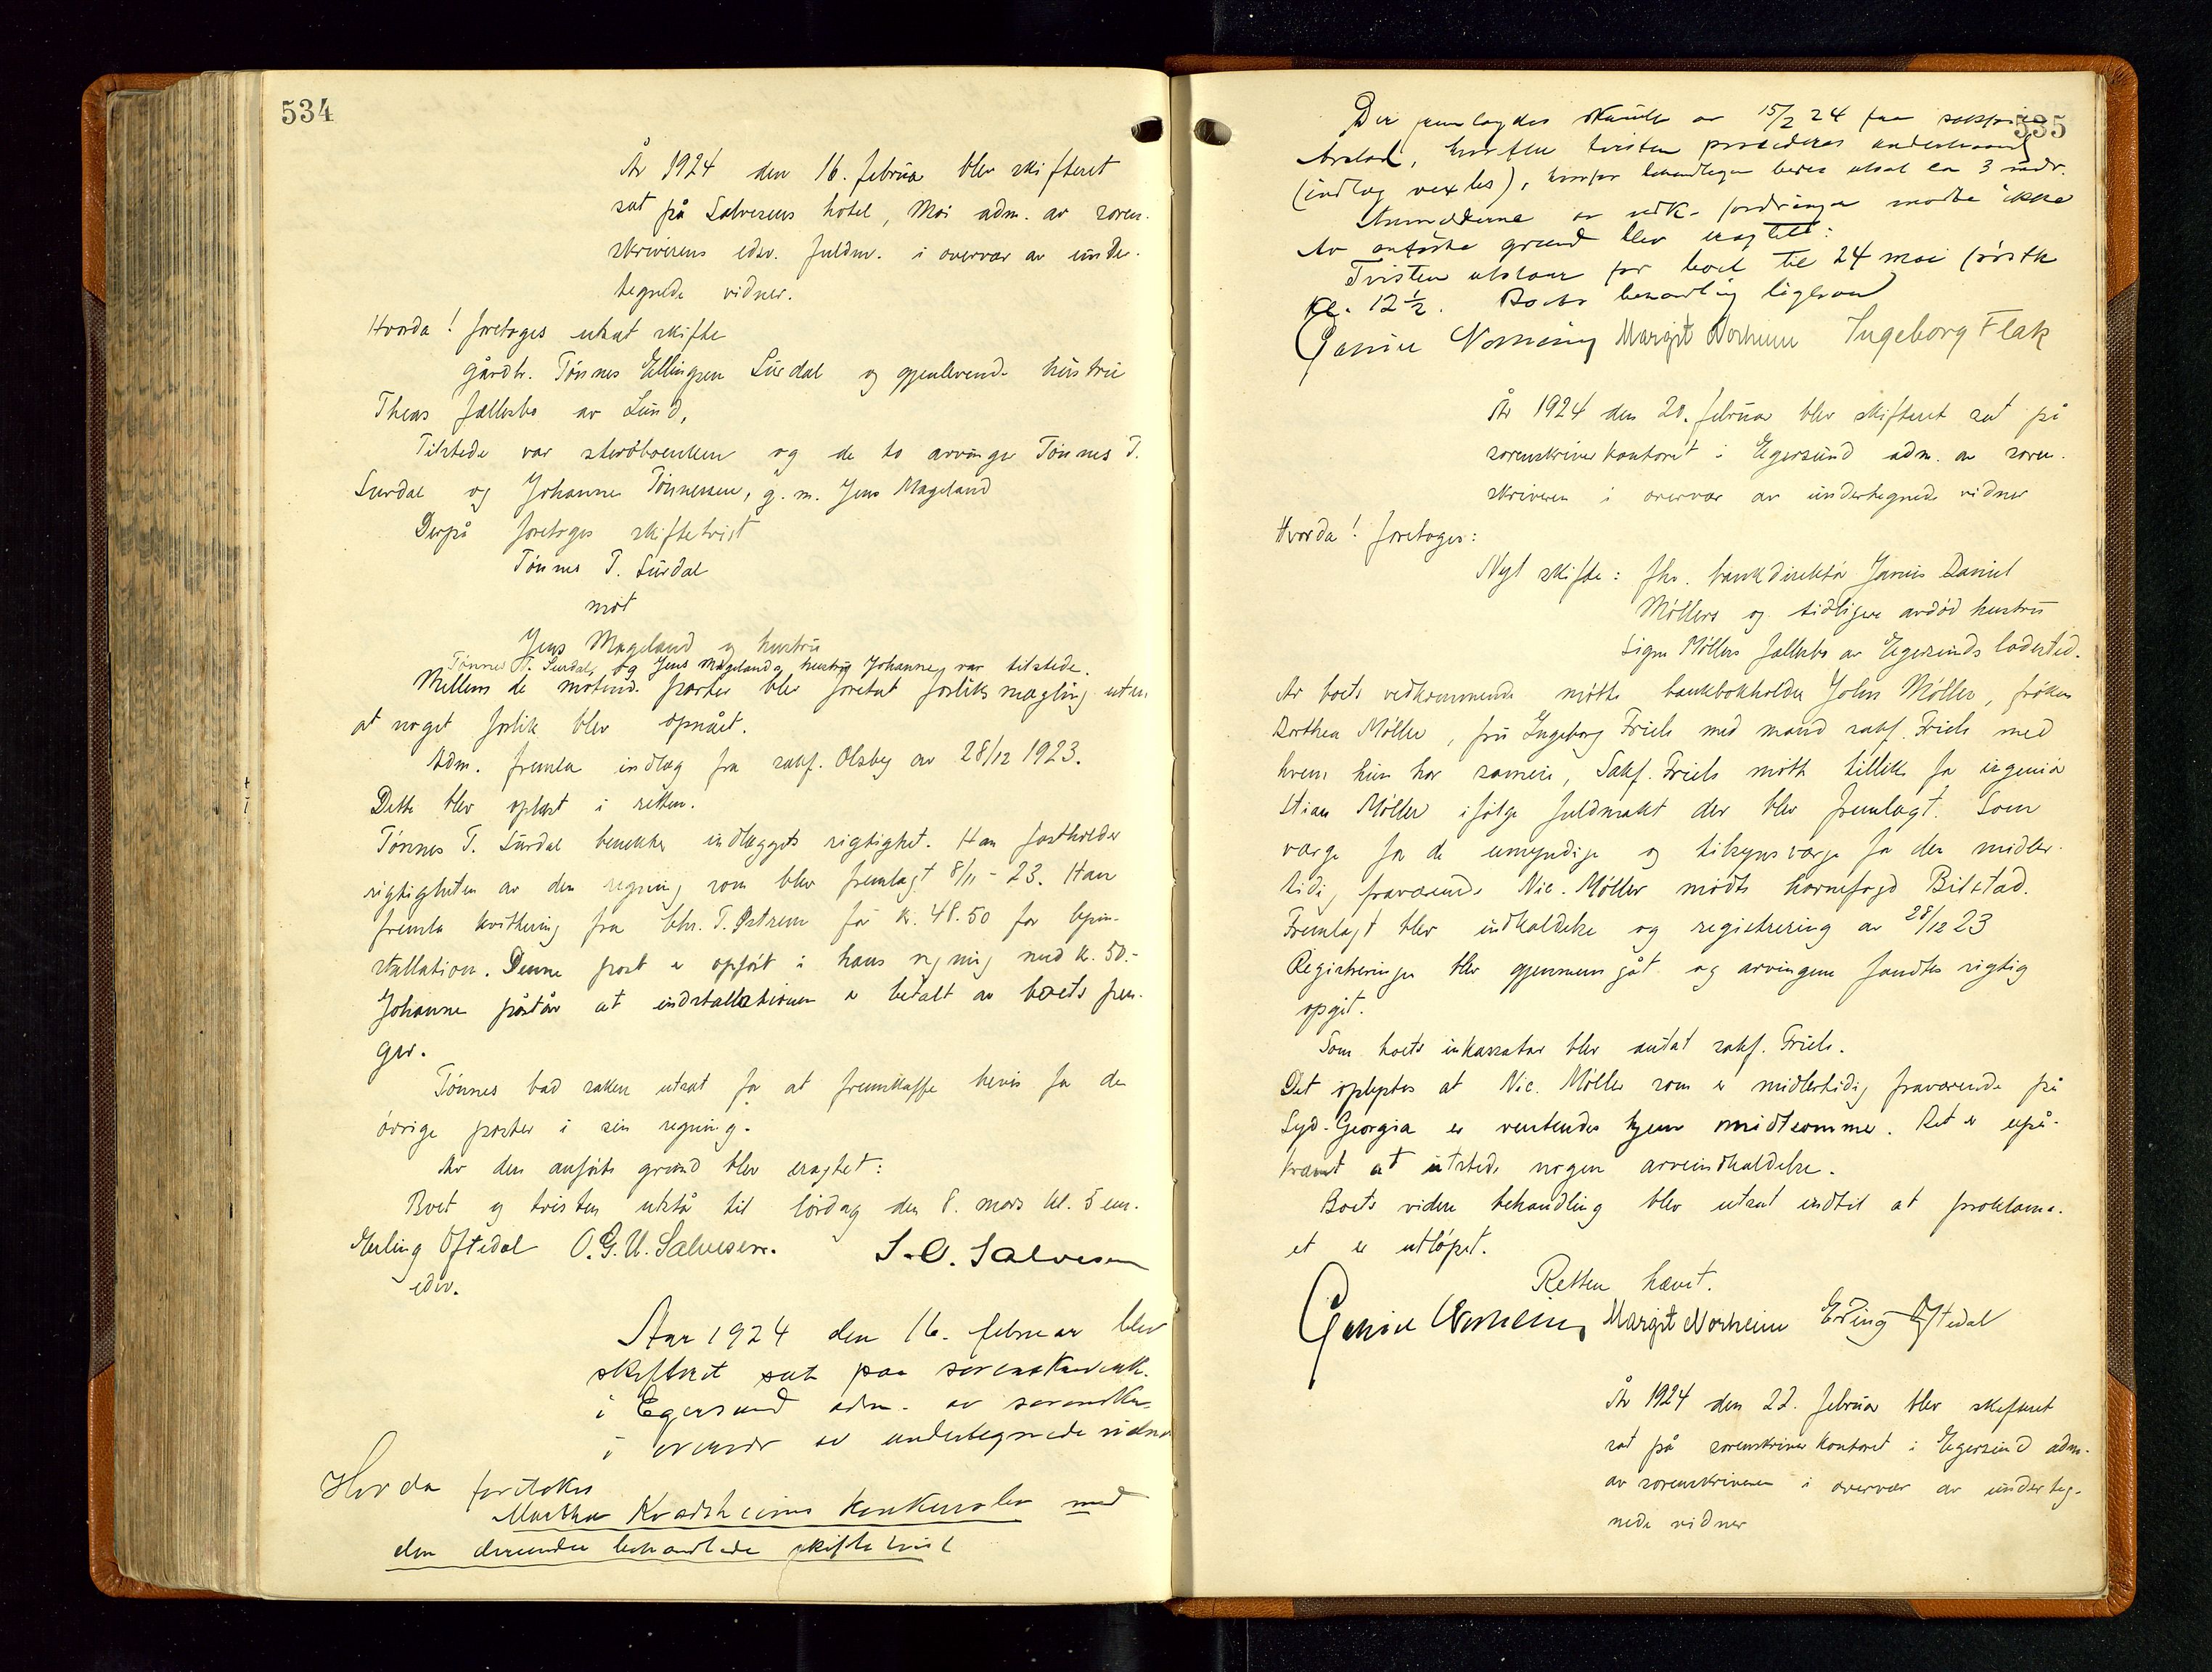 534
År 1924 den 16. februar blev skifteret
sat på Salvesens hotel, Moi adm. av soren-
skriverens edsv. fuldm. i overvær av under-
tegnede vidner.
Hvorda! foretoges utsat skifte
gårdbr. Tönnes Ellingsen Surdal og gjenlevende hustru
Theas fællesbo av Lund,
Tilstede var sterbboenken og de to arvinger Tönnes T.
Surdal og Johanne Tönnessen, g. m. Jens Mageland
Derpå foretoges skiftetvist
Tönnes T. Surdal
mot
Jens Mageland og hustru
Tönnes T. Surdal, og Jens Magelands hustru Johanne, var tilstede.
Mellem de møtende parter blev foretat forliksmægling uten
at noget forlik blev opnået.
Adm. fremla indlæg fra sakf. Olsby av 28/12 1923.
Dette blev oplæst i retten.
Tönnes T. Surdal benekter indlæggets rigtighet. Han fastholder
rigtigheten av den regning som blev fremlagt 8/11 - 23. Han
fremla kvittering fra Chr. T. Østrem for kr. 48.50 for lysin-
stallation. Denne post er opført i hans regning med kr. 50.-
Johanne påstår at indstallationen er betalt av boets pen-
ger.
Tönnes bad saken utsat for at fremskaffe bevis for de
øvrige poster i sin regning.
Av den anførte grund blev eragtet:
Boet og tvisten utstår til lördag den 8. mars kl. 5 em.
Erling Oftedal O.G.U. Salvesen. S. O. Salvesen
edsv.
Aar 1924 den 16. februar blev
skifteret sat paa sorenskriverk.
i Egersund adm. av sorenskr.
i overvær av undertegnede vidner
Hvorda foretokes
Martha Kvadsheims konkursbo med
den derunder behandlede skiftetvist
535
Der fremlagdes skrivelse av 15/2 24 fra sakfører
hvorefter tvisten procederes underhaand
(indlæg vexles), hvorfor behandlingen bedes utsat ca 3 mdr.
Anmelderne av fordringer mødte ikke
Av anførte grund blev eragtet:
Tvisten utstaar for boet til 24 mai førstk
kl. 12 1/2. Boets behandling ligesaa
Margit Norheim Ingeborg Flak
År 1924 den 20. februar blev skifteret sat på
sorenskriverkontoret i Egersund adm. av soren-
skriveren i overvær av undertegnede vidner
Hvorda! foretoges:
Nyt skifte: fhv. bankdirektör Janius Daniel
Möllers og tidligere avdöd hustru
Signe Möllers fællesbo av Egersunds ladested.
Av boets vedkommende mötte bankbokholder John Möller, fröken
Dorthea Möller, fru Ingeborg Friele med mand sakf. Friele med
hvem hun har særeie, Sakf. Friele mötte tillike for ingeniör
Stian Möller ifölge fuldmakt der blev fremlagt. Som
værge for de umyndige og tilsynsværge for den midler-
tidig fraværende Nic. Möller mödte havnefogd Bilstad.
Fremlagt blev indkaldelse og registrering av 28/12 23
Registreringen blev gjennemgåt og arvingene fandtes rigtig
opgit.
Som boets inkassator blev antat sakf. Friele.
Det oplystes at Nic. Möller som er midlertidig fraværende på
Syd-Georgia er ventendes hjem midtsommer. Det er upå-
krævet at utstede nogen arveindkaldelse.
Boets videre behandling blev utsat indtil at proklama-
et er utlöpet.
Retten hævet.
Margit Norheim Erling Oftedal
År 1924 den 22. februar blev skifteret
sat på sorenskriverkontoret i Egersund adm.
av sorenskriveren i overvær av underteg-
nede vidner